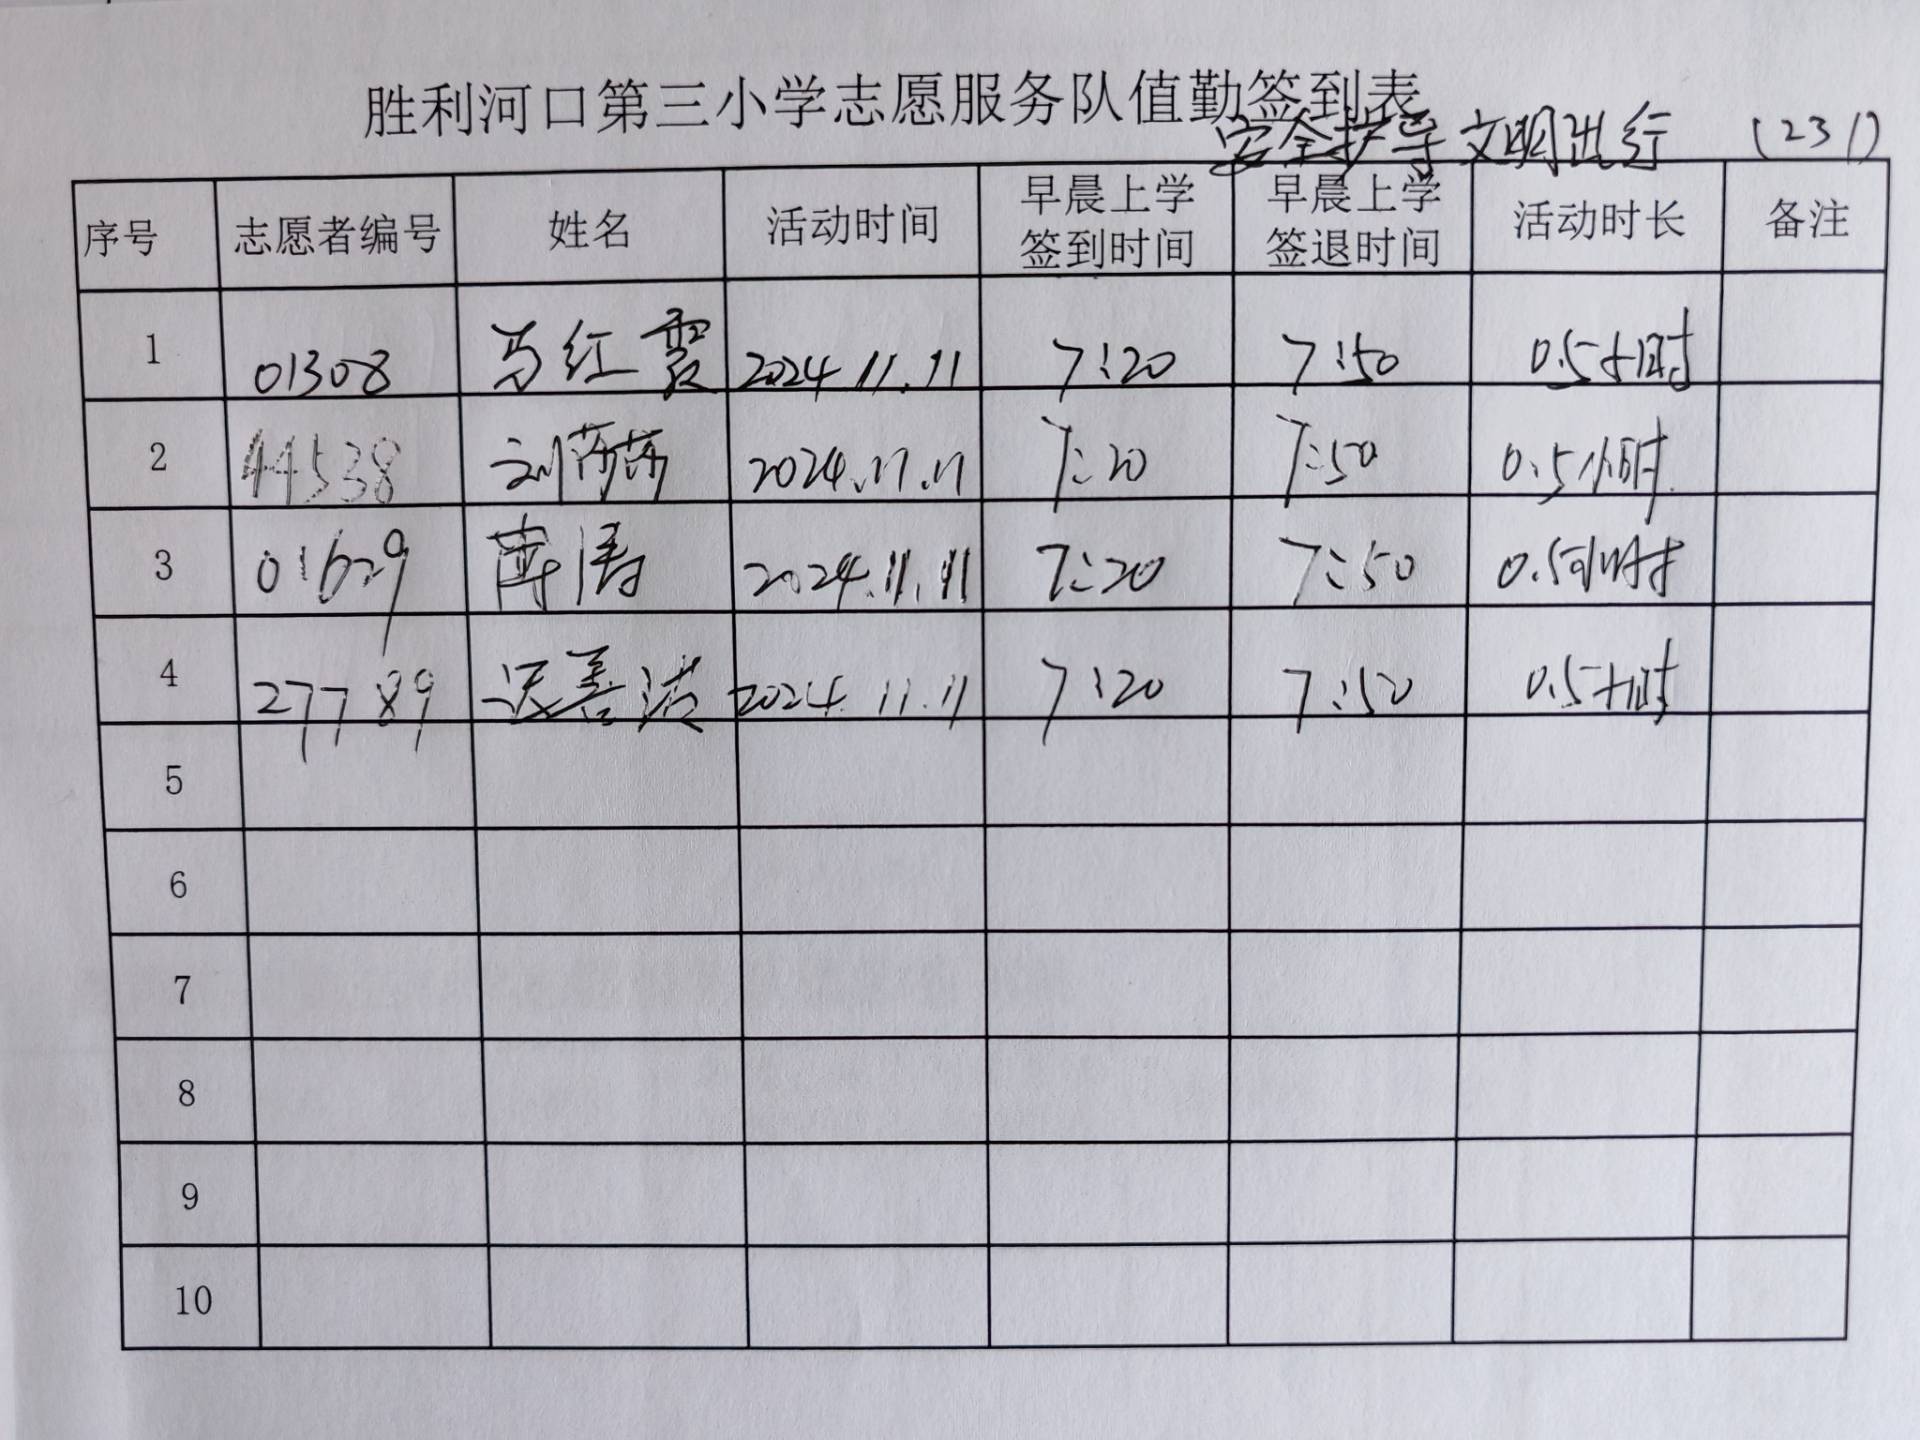 胜利河口第三小学志愿服务队值勤签到表
安全护导 文明出行 (231)
序号 志愿者编号 姓名 活动时间 早晨上学签到时间 早晨上学签退时间 活动时长 备注
1 01308 马红霞 2024.11.11 7:20 7:50 0.5小时
2 44538 刘莎莎 2024.11.11 7:20 7:50 0.5小时
3 01629 2024.11.11 7:20 7:50 0.5小时
4 27789 迟善洁 2024.11.11 7:20 7:50 0.5小时
5
6
7
8
9
10